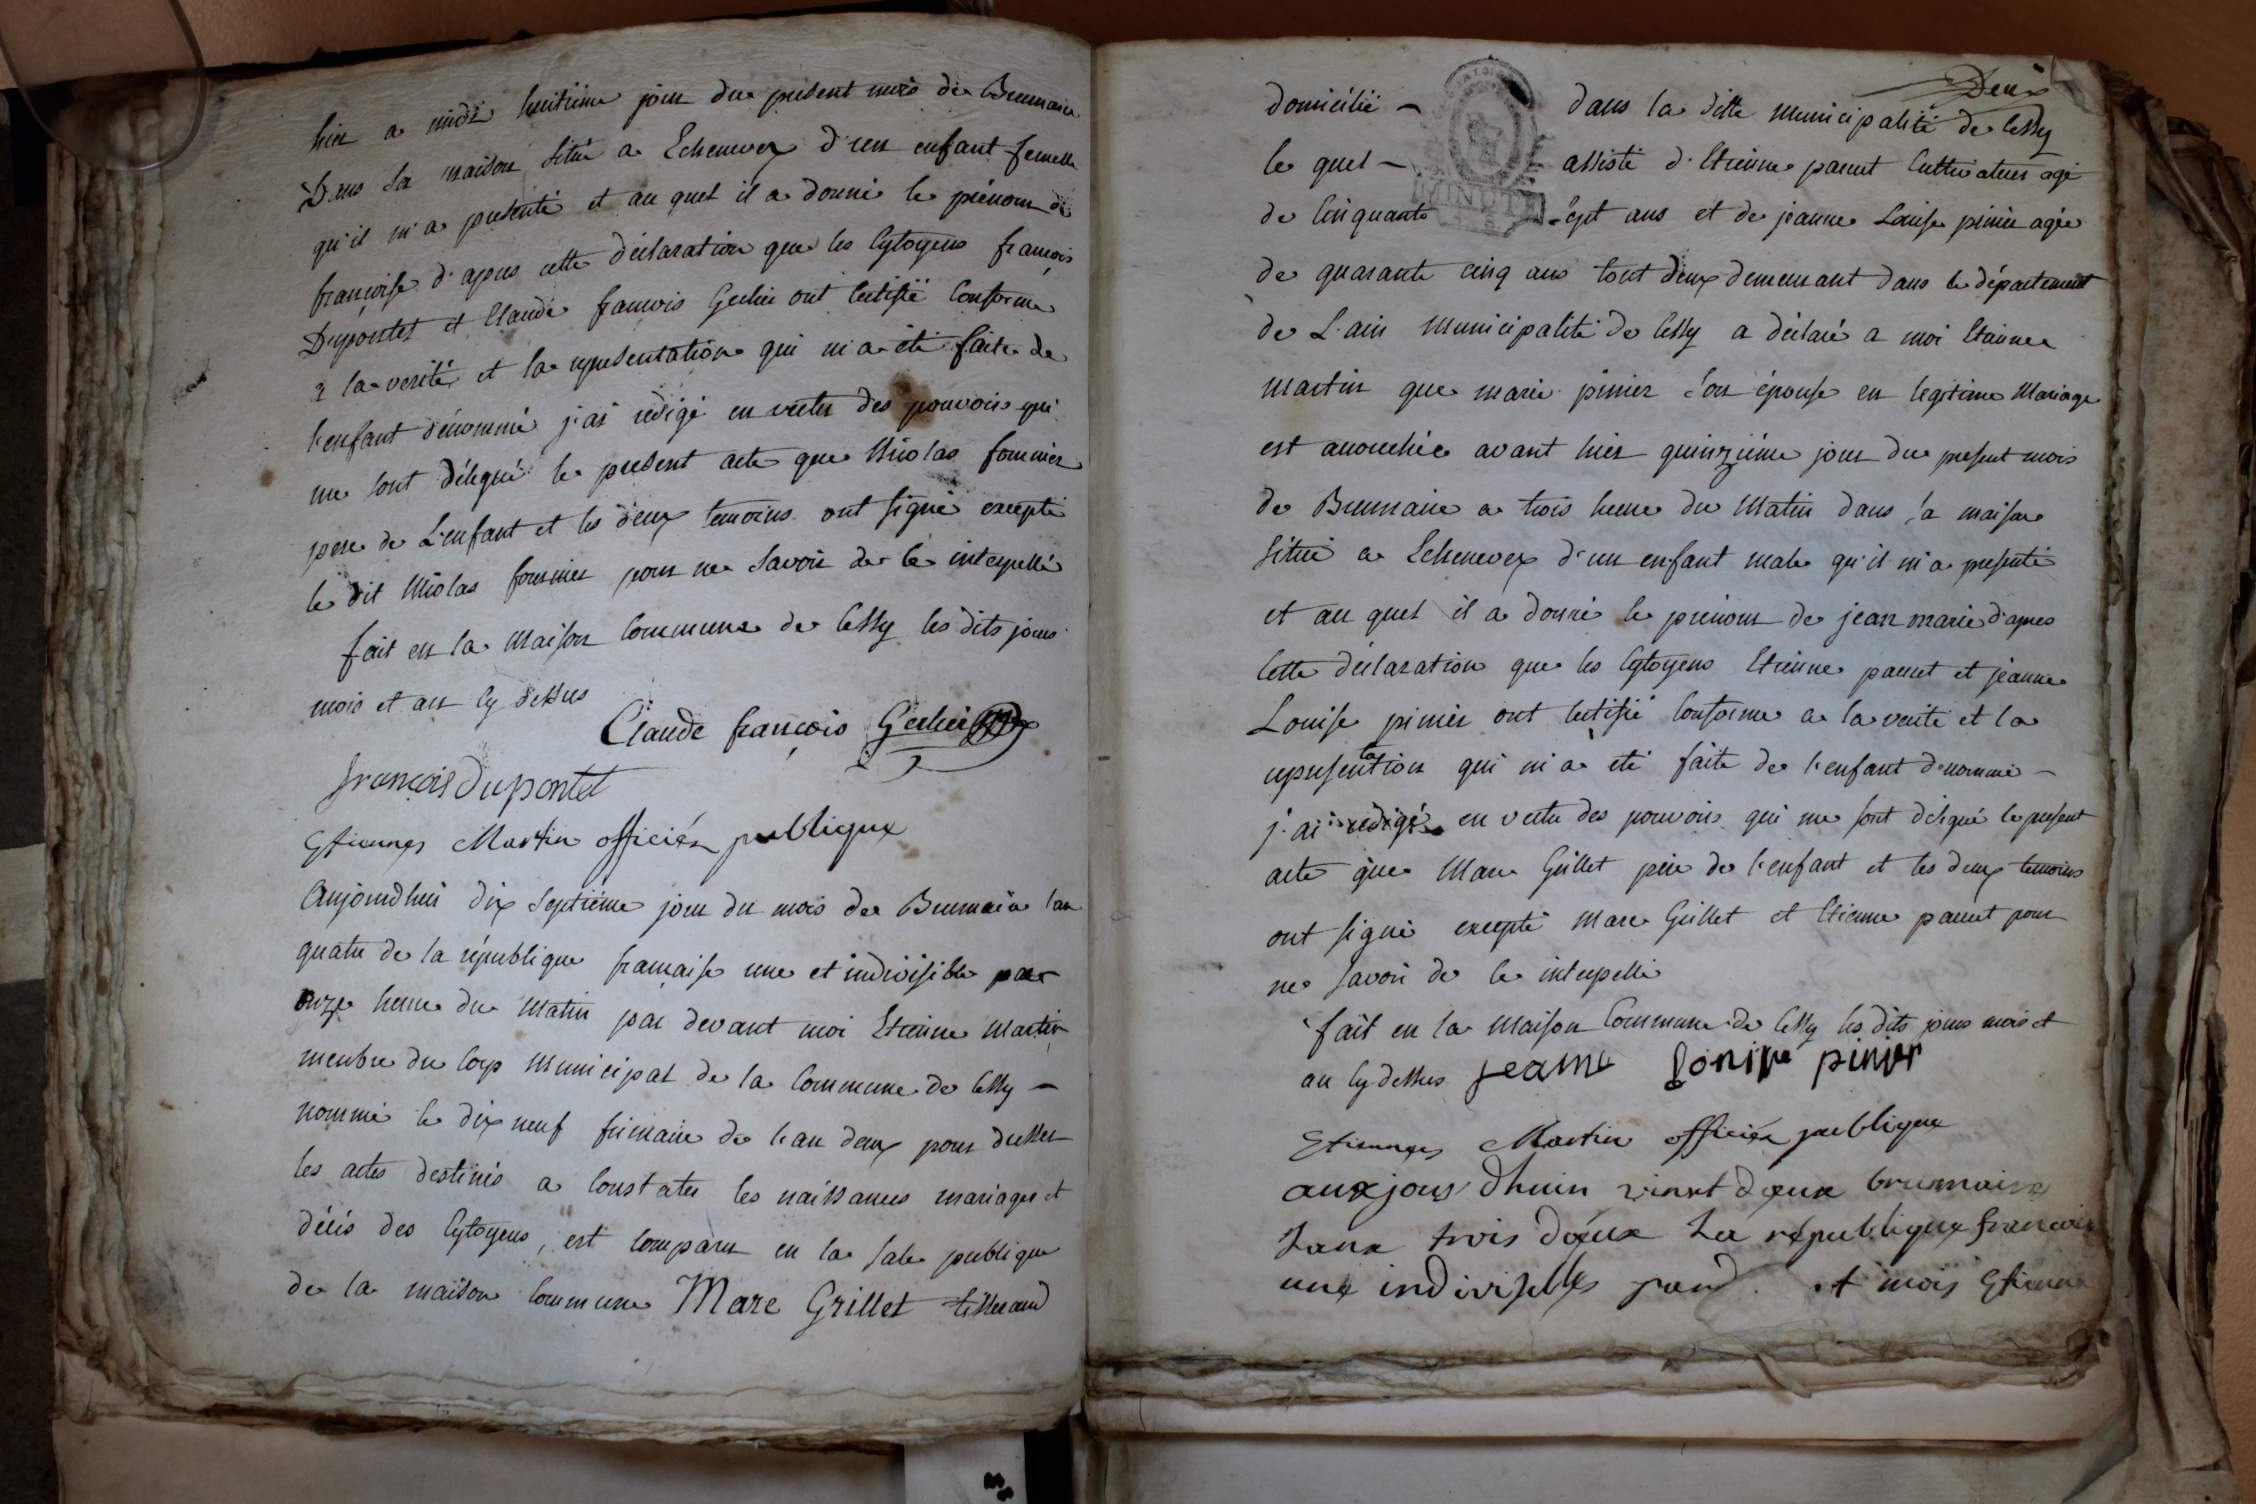 hier a midi huitiéme jour du present mois de Brumaire
Dans sa maison situé a Echenevex d'un enfant femelle
qu'il m'a presenté et au quel il a donné le prénom de
françoise d'apres cette déclaration que les Cytoyens françois
Dupontet et Claude françois Gerlier ont certifié Conforme
a la verité et la representation qui m'a été faite de
l'enfant dénommé j'ai redigé en vertu des pouvoirs qui
me sont délegué le present acte que Nicolas fournier
pere de L'enfant et les deux temoins ont signé excepté
le dit Nicolas fournier pour ne savoir de ce interpellé
fait en la Maison Commune de Cessy les dits jours
mois et an cy dessus
Claude françois Gerlier
françois Dupontet
Etiennes Martin officiér publique
Aujourdhui dix septiéme jour du mois de Brumaire l'an
quatre de la république francaise une et indivisible par
onze heure du Matin par devant moi Etienne Martin
membre du Corp Municipal de la Commune de Cessy —
nommé le dix neuf frimaire de l'an deux pour dresser
les actes destinés a Constater les naissances mariages et
décés des Cytoyens, est comparu en la sale publique
de la maison commune Marc Grillet tisserand
Deux
domicilié — dans la ditte Municipalité de Cessy
le quel — assisté d'Etienne parent Cultivateur agé
de Cinquante sept ans et de jeanne Louise pinier agée
de quarante cinq ans tout deux demeurant dans le département
de L'ain Municipalité de Cessy a déclaré a moi Etienne
Martin que marie pinier son épouse en legitime Mariage
est accouchée avant hier quinziéme jour du present mois
de Brumaire a trois heure du Matin dans sa maison
situé a Echenevex d'un enfant male qu'il m'a presenté
et au quel il a donné le prénom de jean marie d'apres
cette déclaration que les Cytoyens Etienne parent et jeanne
Louise pinier ont certifié conforme a la verité et la
representation qui m'a eté faite de l'enfant denommé —
j'ai redigé en vertu des pouvoirs qui me sont délegué le present
acte que Marc Grillet pére de l'enfant et les deux temoins
ont signé excepté Marc Grillet et Etienne parent pour
ne savoir de ce interpellé
fait en la Maison Commune de Cessy les dits jours mois et
an cy dessus jeanne Louise pinier
Etiennes Martin officiér publique
auxjours dhuin vinnt deux brumaire
Lanx trois deux La républiques francois
une indivisibles pard et mois Etienne